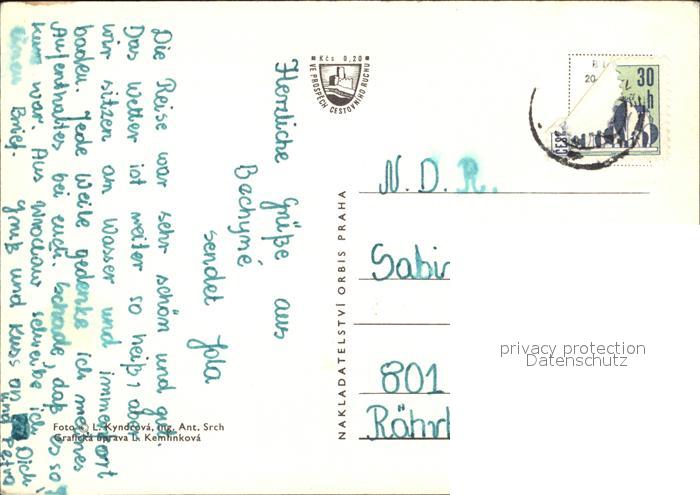 Herzliche Grüße aus
Bechyně
sendet Jola
Die Reise war sehr schön und gut.
Das Wetter ist weiter so heiß, aber
wir sitzen am Wasser und immerfort
baden. Jede Weile gedenke ich meines
Aufenthaltes bei euch. Schade, daß es so
kurz war. Aus Wrocław schreibe ich
einen Brief.
Gruß und Kuss an Dich
und Petra
Kčs 0,20
VE PROSPĚCH CESTOVNÍHO RUCHU
30
h
N.D.R.
Sabir
801
Röhrl
NAKLADATELSTVÍ ORBIS PRAHA
privacy protection
Datenschutz
Foto © L. Kyndrová, Ing. Ant. Srch
Grafická úprava L. Kemlinková